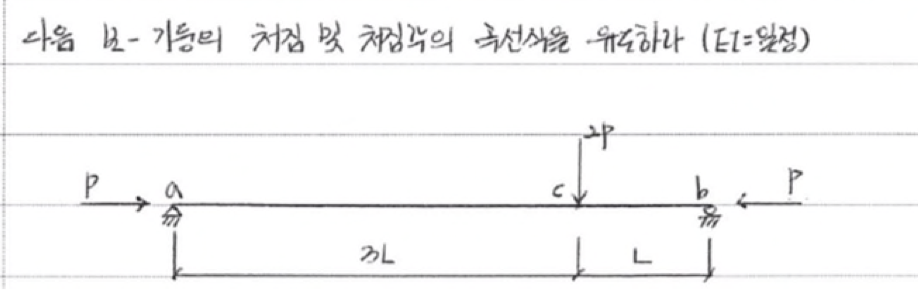 다음 보-기둥의 처짐 및 처짐각의 곡선식을 유도하라 (EI=일정)
2P
P a c b P
3L L